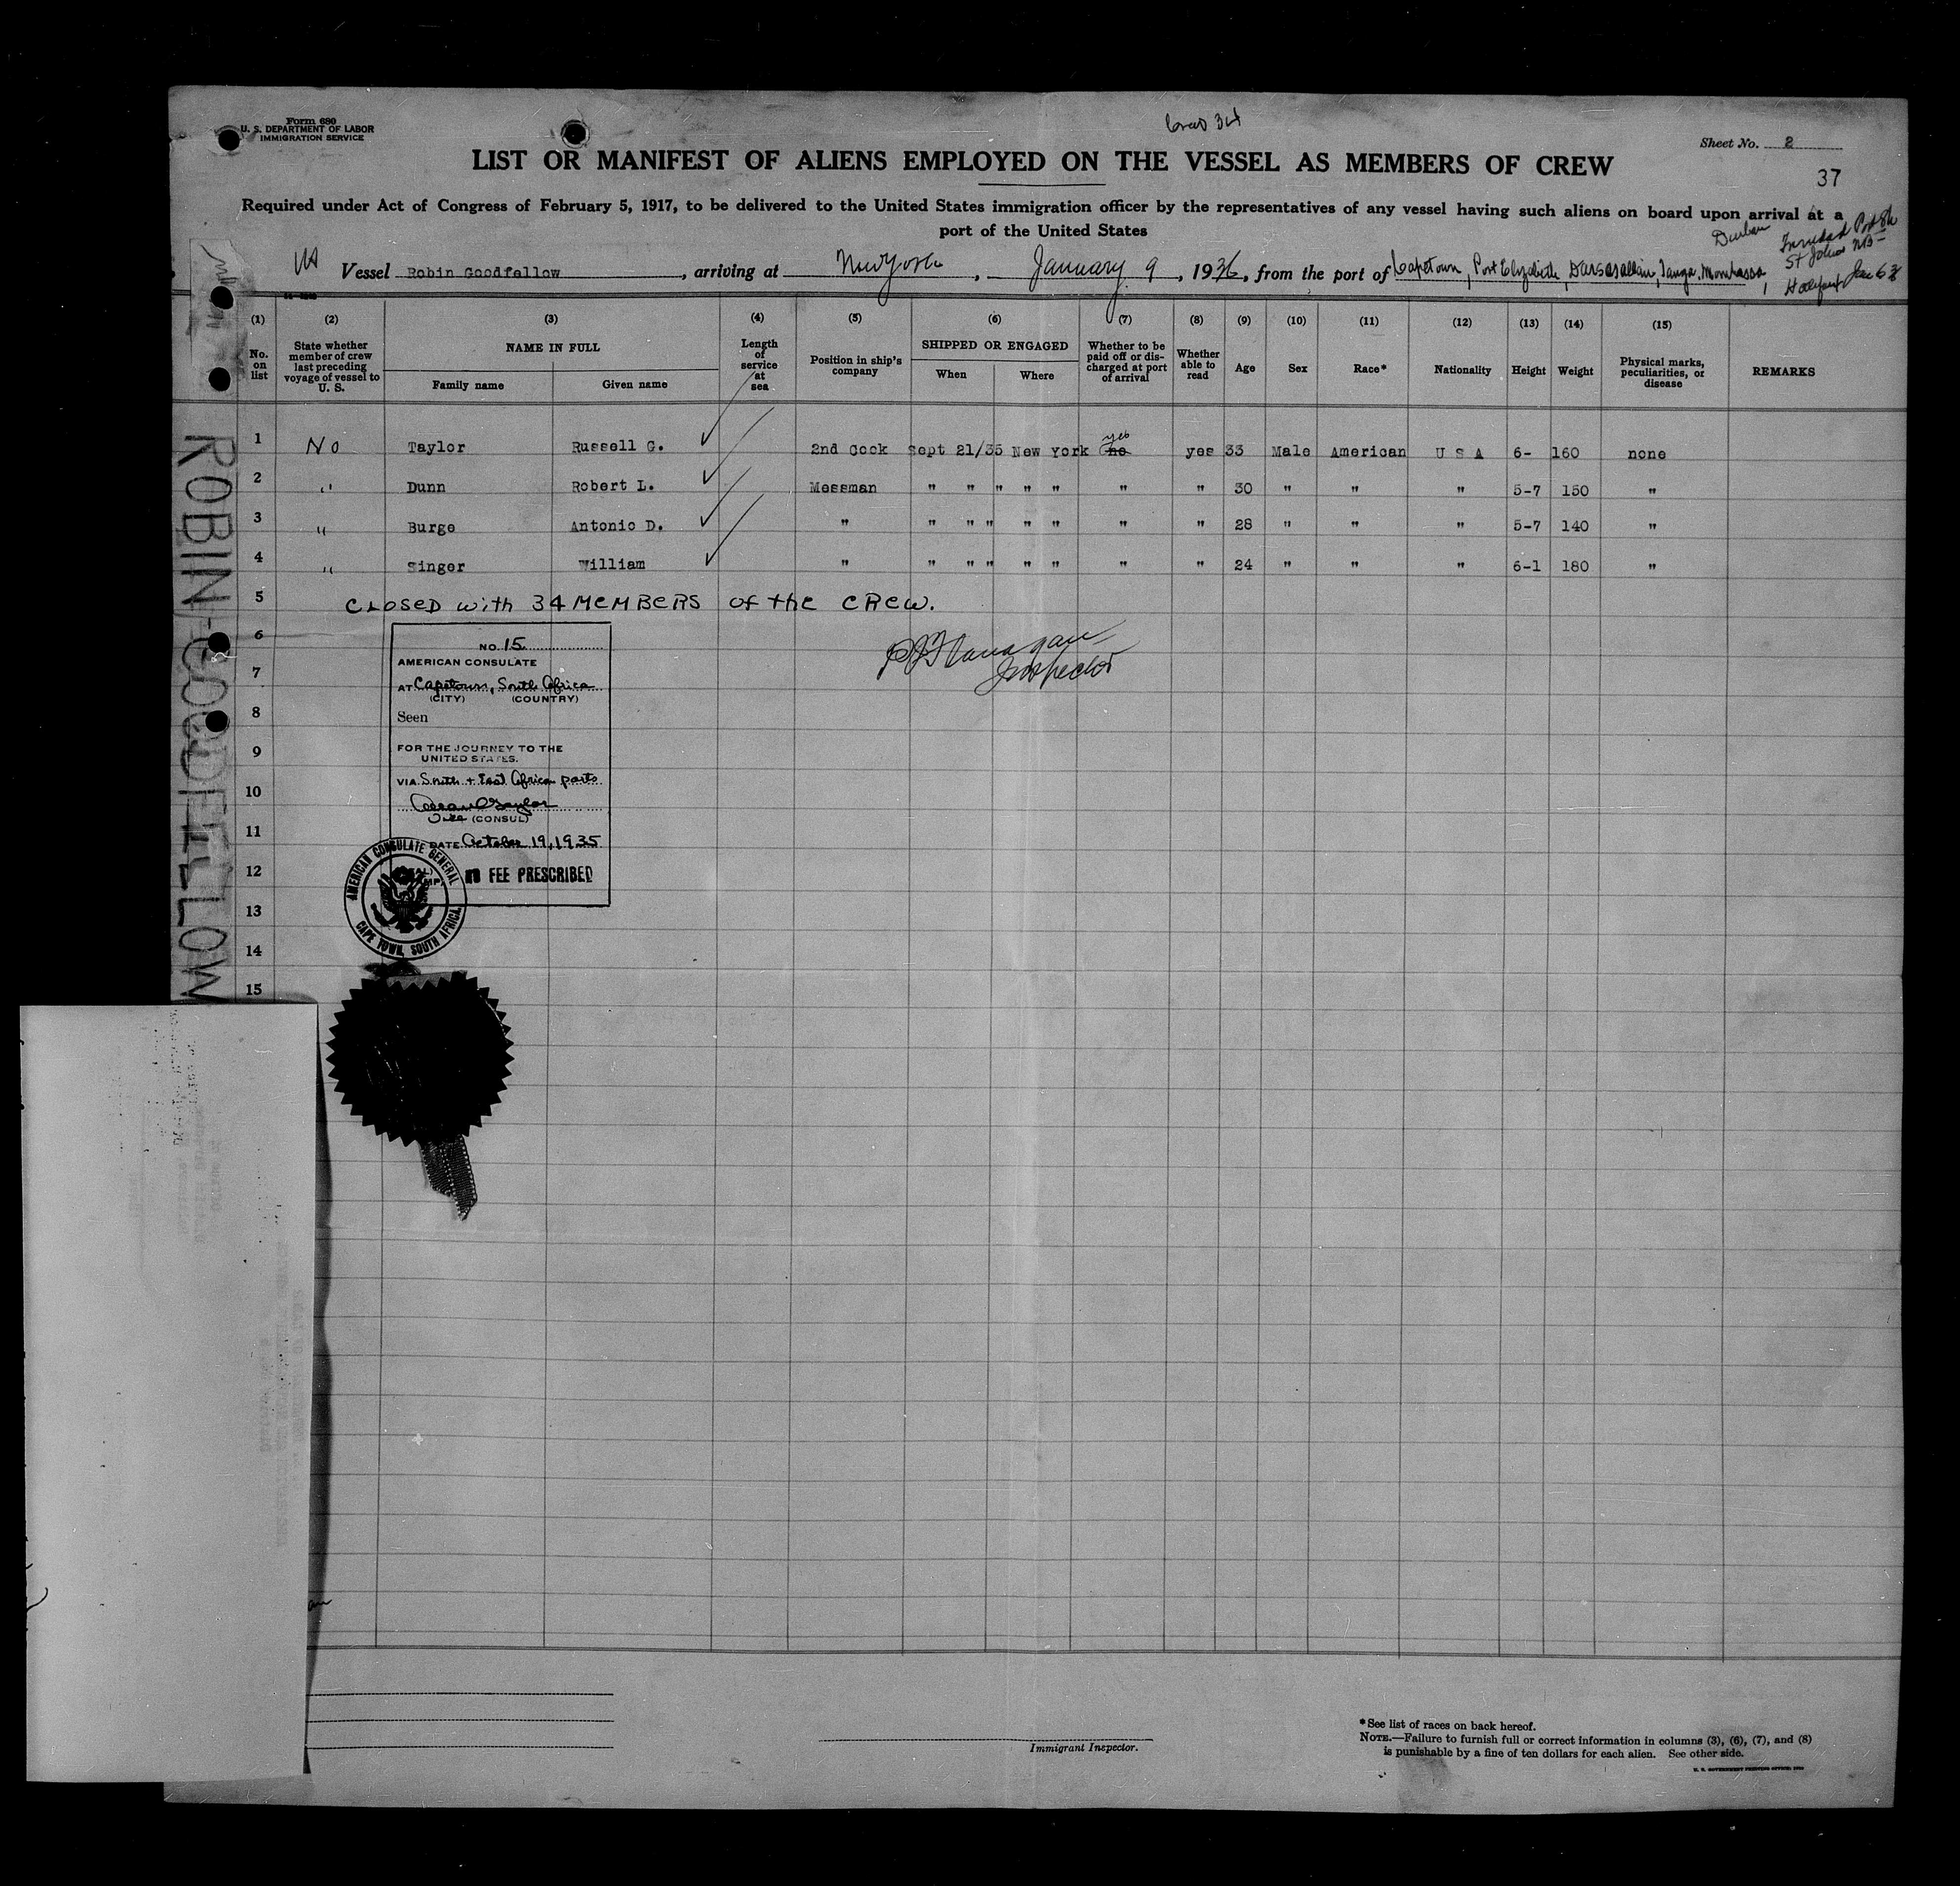 Form 680
U. S. DEPARTMENT OF LABOR
IMMIGRATION SERVICE
Crew 34
Sheet No. 2
37
LIST OR MANIFEST OF ALIENS EMPLOYED ON THE VESSEL AS MEMBERS OF CREW
Required under Act of Congress of February 5, 1917, to be delivered to the United States immigration officer by the representatives of any vessel having such aliens on board upon arrival at a
port of the United States
Vessel Robin Goodfellow, arriving at New York, January 9, 1936, from the port of Capetown, Port Elizabeth, Daresallam, Tanga, Mombassa,
Durban
Trinidad
St John NB
Halifax Jan 6
(1) (2) (3) (4) (5) (6) (7) (8) (9) (10) (11) (12) (13) (14) (15)
No. on list
State whether member of crew last preceding voyage of vessel to U. S.
NAME IN FULL
Family name
Given name
Length of service at sea
Position in ship's company
SHIPPED OR ENGAGED
When
Where
Whether to be paid off or discharged at port of arrival
Whether able to read
Age
Sex
Race*
Nationality
Height
Weight
Physical marks, peculiarities, or disease
REMARKS
yes
1 No Taylor Russell G. 2nd Cook Sept 21/35 New York no yes 33 Male American U S A 6- 160 none
2 " Dunn Robert L. Messman " " " " " " " 30 " " " 5-7 150 "
3 " Burge Antonio D. " " " " " " " " 28 " " " 5-7 140 "
4 " Singer William " " " " " " " " 24 " " " 6-1 180 "
5 CLOSED with 34 MEMBERS of the CREW.
6
7
8
9
10
11
12
13
14
15
Flanagan
Inspector
NO. 15
AMERICAN CONSULATE
AT Capetown, South Africa
(CITY) (COUNTRY)
Seen
FOR THE JOURNEY TO THE
UNITED STATES.
VIA South + East African ports
Vice (CONSUL)
DATE October 19, 1935
NO FEE PRESCRIBED
AMERICAN CONSULATE GENERAL
CAPE TOWN, SOUTH AFRICA.
ROBIN-GOODFELLOW
Immigrant Inspector.
*See list of races on back hereof.
NOTE.—Failure to furnish full or correct information in columns (3), (6), (7), and (8)
is punishable by a fine of ten dollars for each alien. See other side.